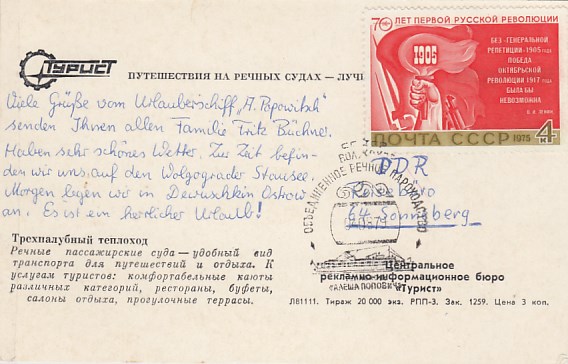 Турист
ПУТЕШЕСТВИЯ НА РЕЧНЫХ СУДАХ — ЛУЧ
70 ЛЕТ ПЕРВОЙ РУССКОЙ РЕВОЛЮЦИИ
1905
БЕЗ «ГЕНЕРАЛЬНОЙ
РЕПЕТИЦИИ» 1905 года
ПОБЕДА
ОКТЯБРЬСКОЙ
РЕВОЛЮЦИИ 1917 года
БЫЛА БЫ
НЕВОЗМОЖНА
В. И. ЛЕНИН
ПОЧТА СССР 1975 4к
Viele Grüße vom Urlauberschiff „A. Popowitsch"
senden Ihnen allen Familie Fritz Büchner.
Haben sehr schönes Wetter. Zur Zeit befin-
den wir uns auf den Wolgograder Stausee.
Morgen legen wir in Dewuschkin Ostrow
an. Es ist ein herrlicher Urlaub!
DDR
Reisebüro
64 Sonneberg
ОБЪЕДИНЕННОЕ РЕЧНОЕ ПАРОХОДСТВО
„АЛЕША ПОПОВИЧ"
Трехпалубный теплоход
Речные пассажирские суда — удобный вид
транспорта для путешествий и отдыха. К
услугам туристов: комфортабельные каюты
различных категорий, рестораны, буфеты,
салоны отдыха, прогулочные террасы.
Центральное
рекламно-информационное бюро
«Турист»
Л81111. Тираж 20 000 экз. РПП-3. Зак. 1259. Цена 3 коп.